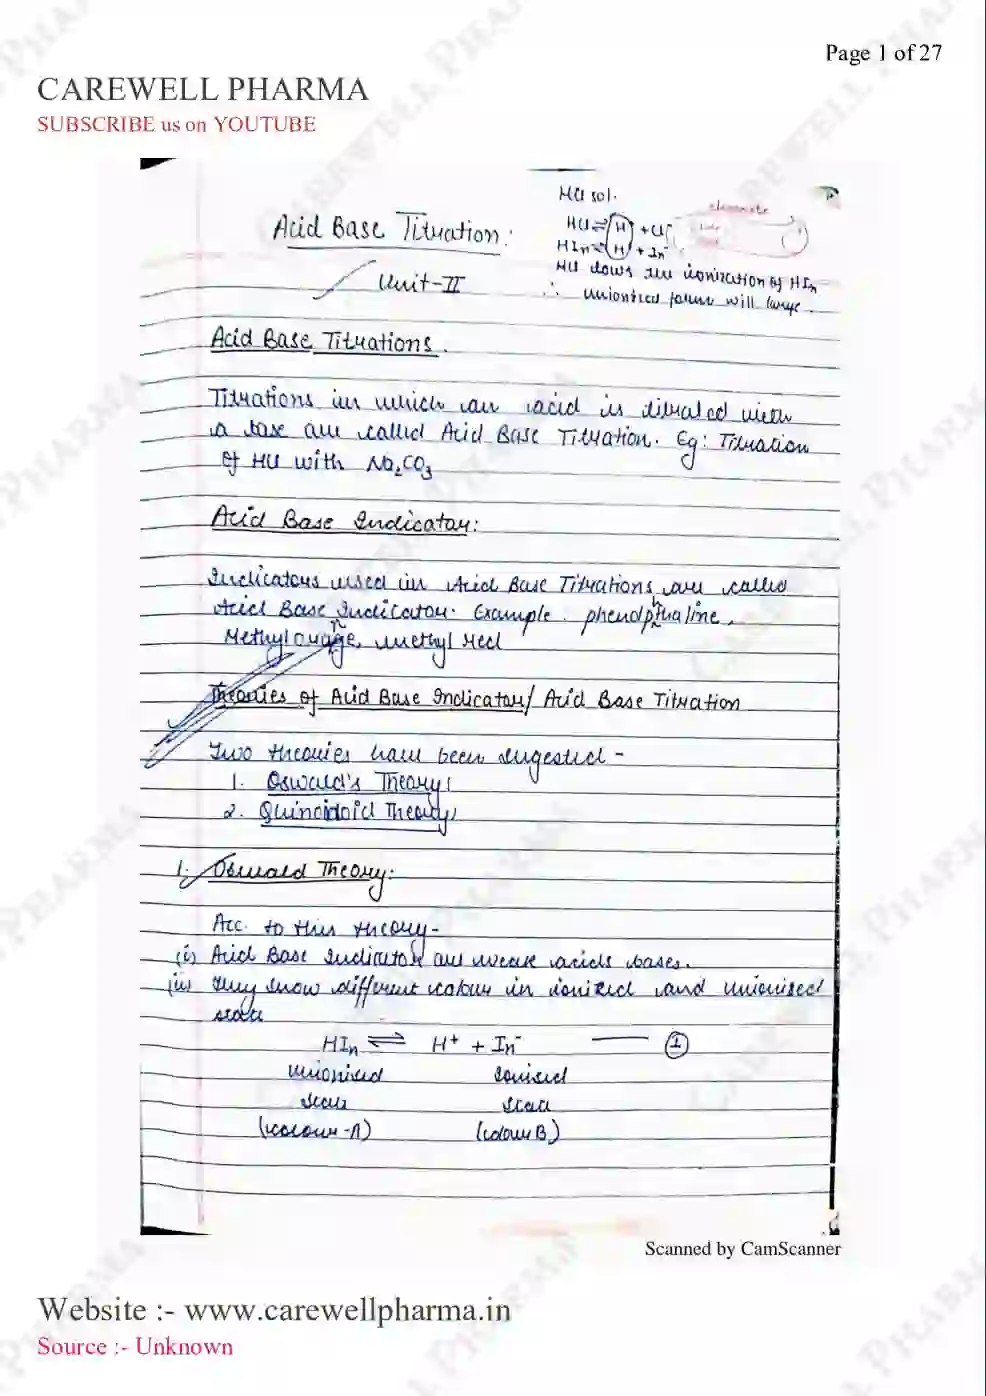 Page 1 of 27
CAREWELL PHARMA
SUBSCRIBE us on YOUTUBE
HCl sol.
HCl ⇌ H + Cl⁻
HIn ⇌ H + In⁻
HCl slows the ionization of HIn
∴ unionised form will large.
Acid Base Titration:
Unit-II
Acid Base Titrations.
Titrations in which an acid is titrated with
a base are called Acid Base Titration. Eg: Titration
of HCl with Na₂CO₃
Acid Base Indicator:
Indicators used in Acid Base Titrations are called
Acid Base Indicator. Example. phenolpthaline,
Methyl orange, methyl red
Theories of Acid Base Indicator/ Acid Base Titration
Two theories have been sugested -
1. Oswald's Theory
2. Quinoidoid Theory
1. Oswald Theory:
Acc. to this theory-
(i) Acid Base Indicator are weak acids bases.
(ii) They show different colour in ionized and unionised
state
HIn ⇌ H⁺ + In⁻ —— ①
unionised ionised
state state
(colour-A) (colour B)
Scanned by CamScanner
Website :- www.carewellpharma.in
Source :- Unknown
CAREWELL PHARMA